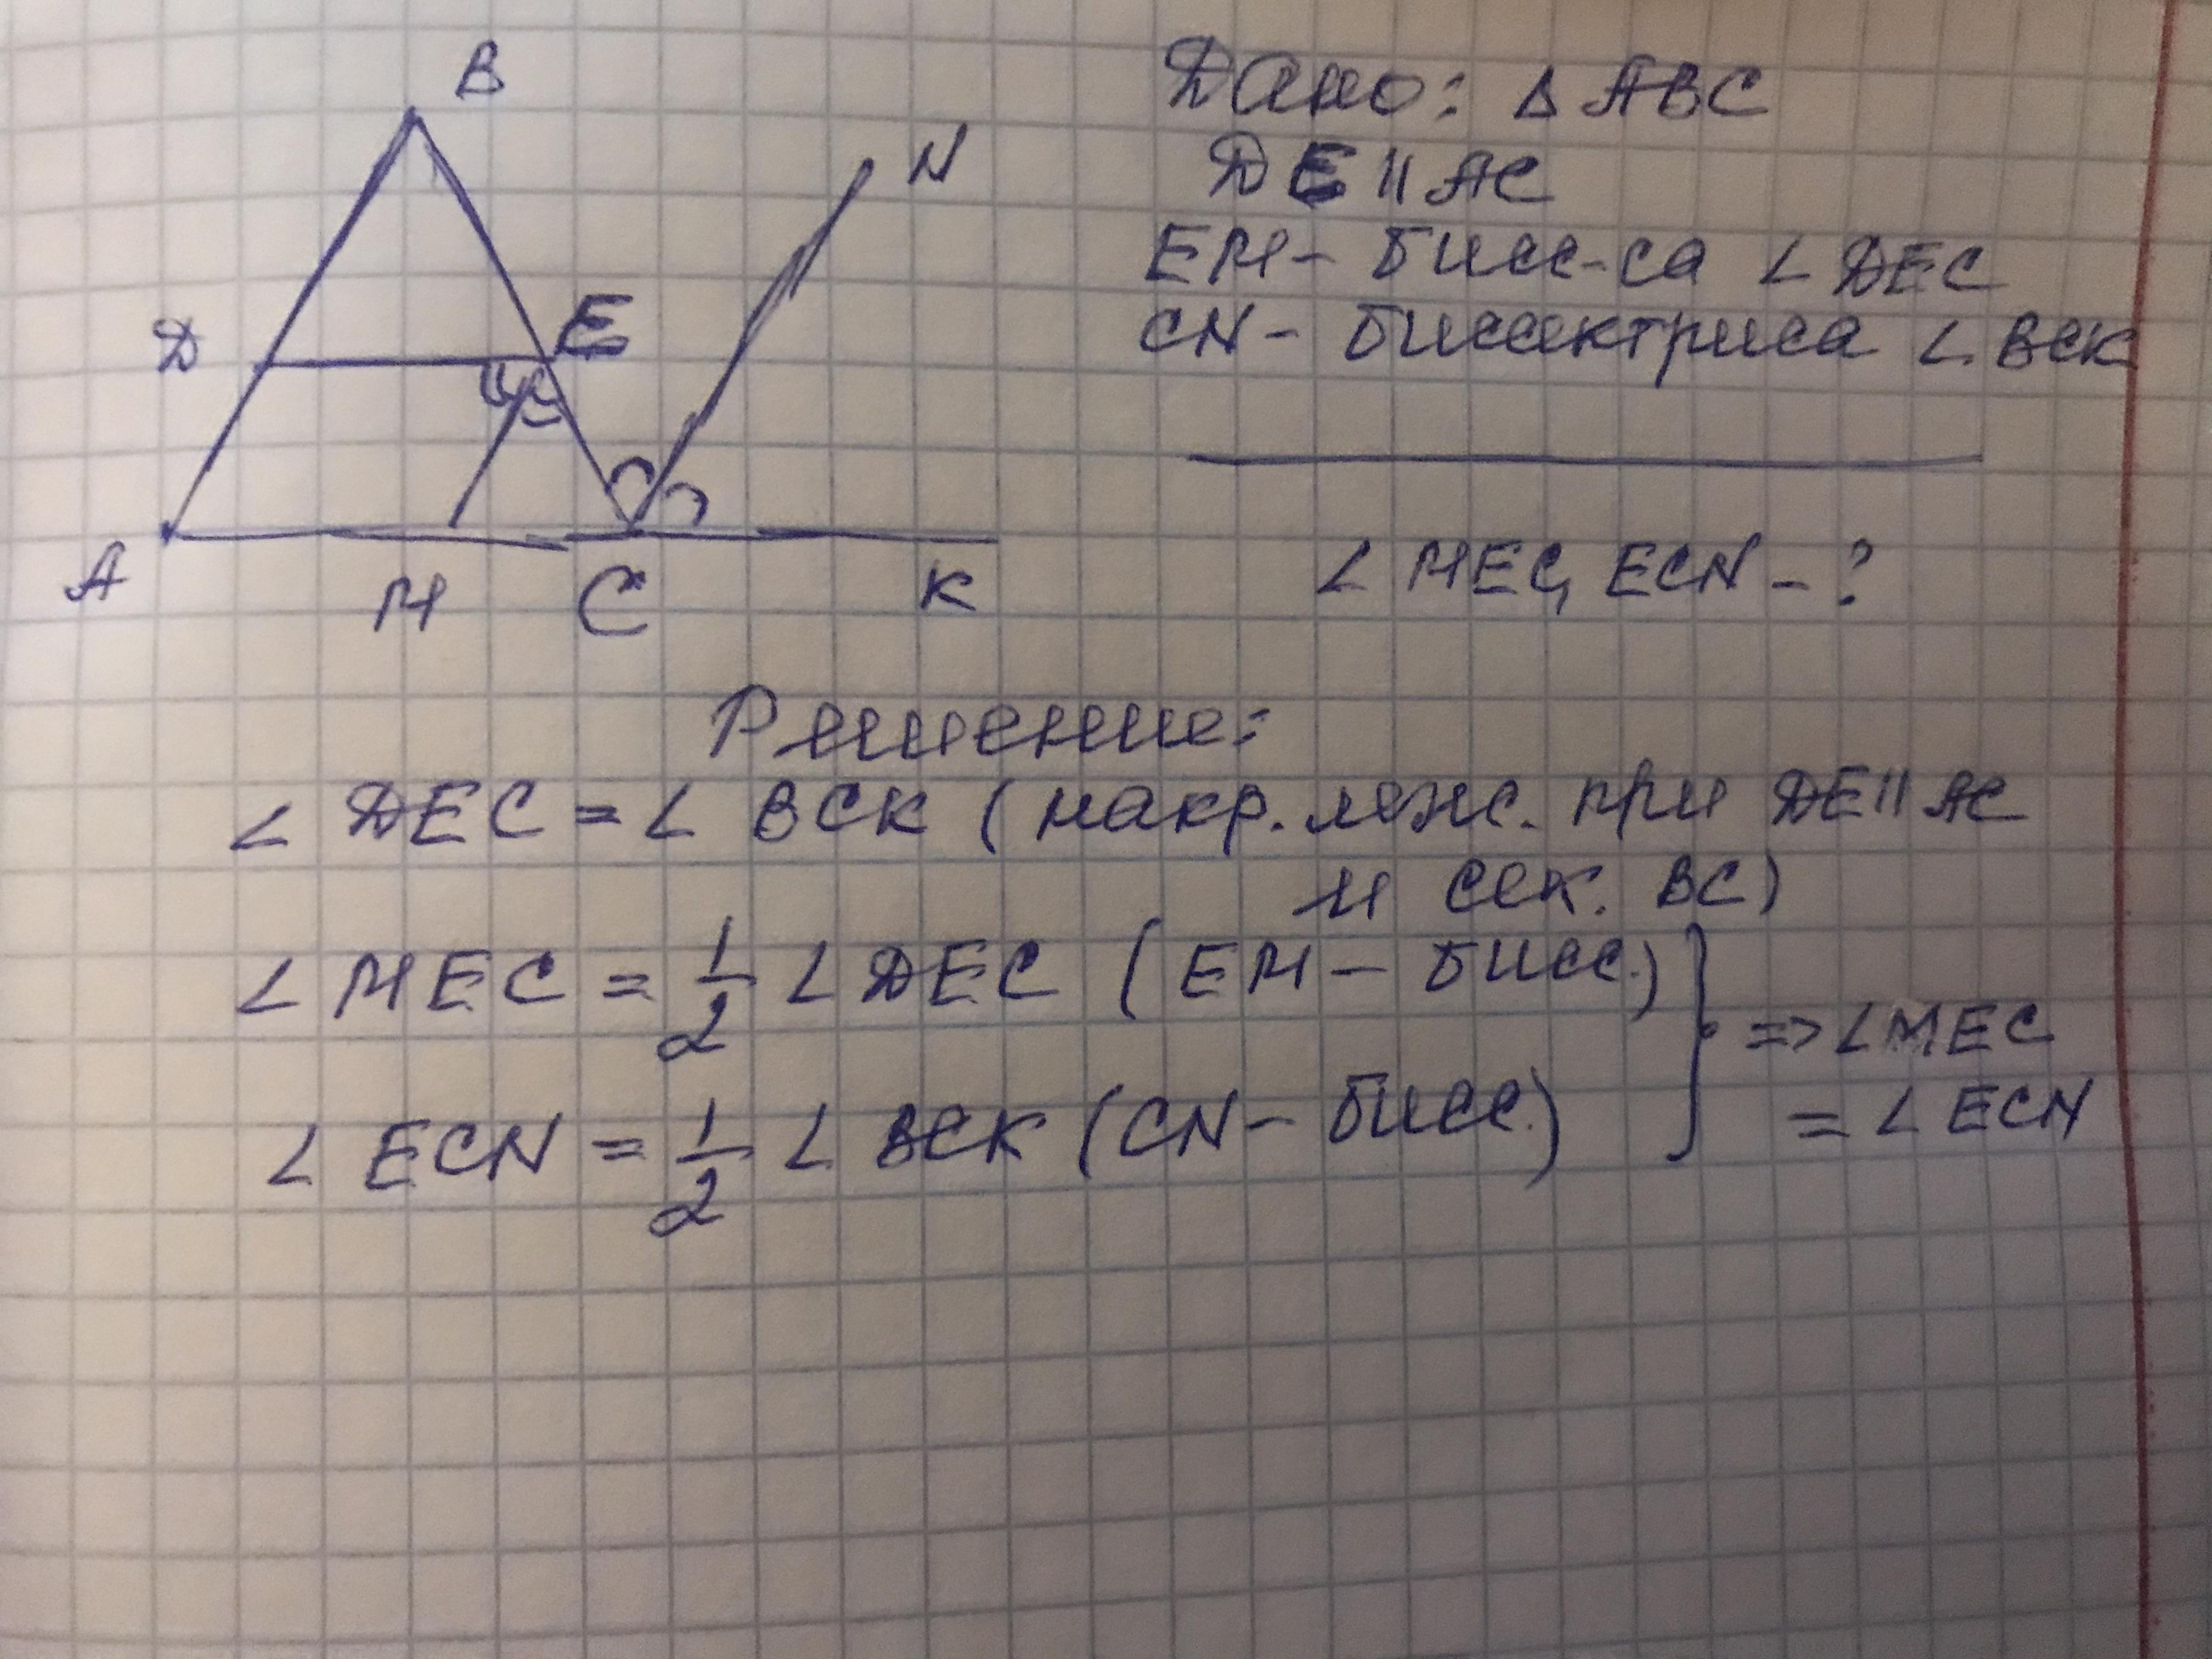 B
N
Д
E
A
M
C
K
Дано: Δ ABC
ДE || AC
EM - бисс-са ∠ ДEC
CN - биссектриса ∠ BCK
∠ MEC, ECN - ?
Решение:
∠ ДEC = ∠ BCK (накр. леж. при ДE || AC
и сек. BC)
∠ MEC = 1/2 ∠ ДEC (EM - бисс.)
∠ ECN = 1/2 ∠ BCK (CN - бисс.)
} => ∠ MEC
= ∠ ECN